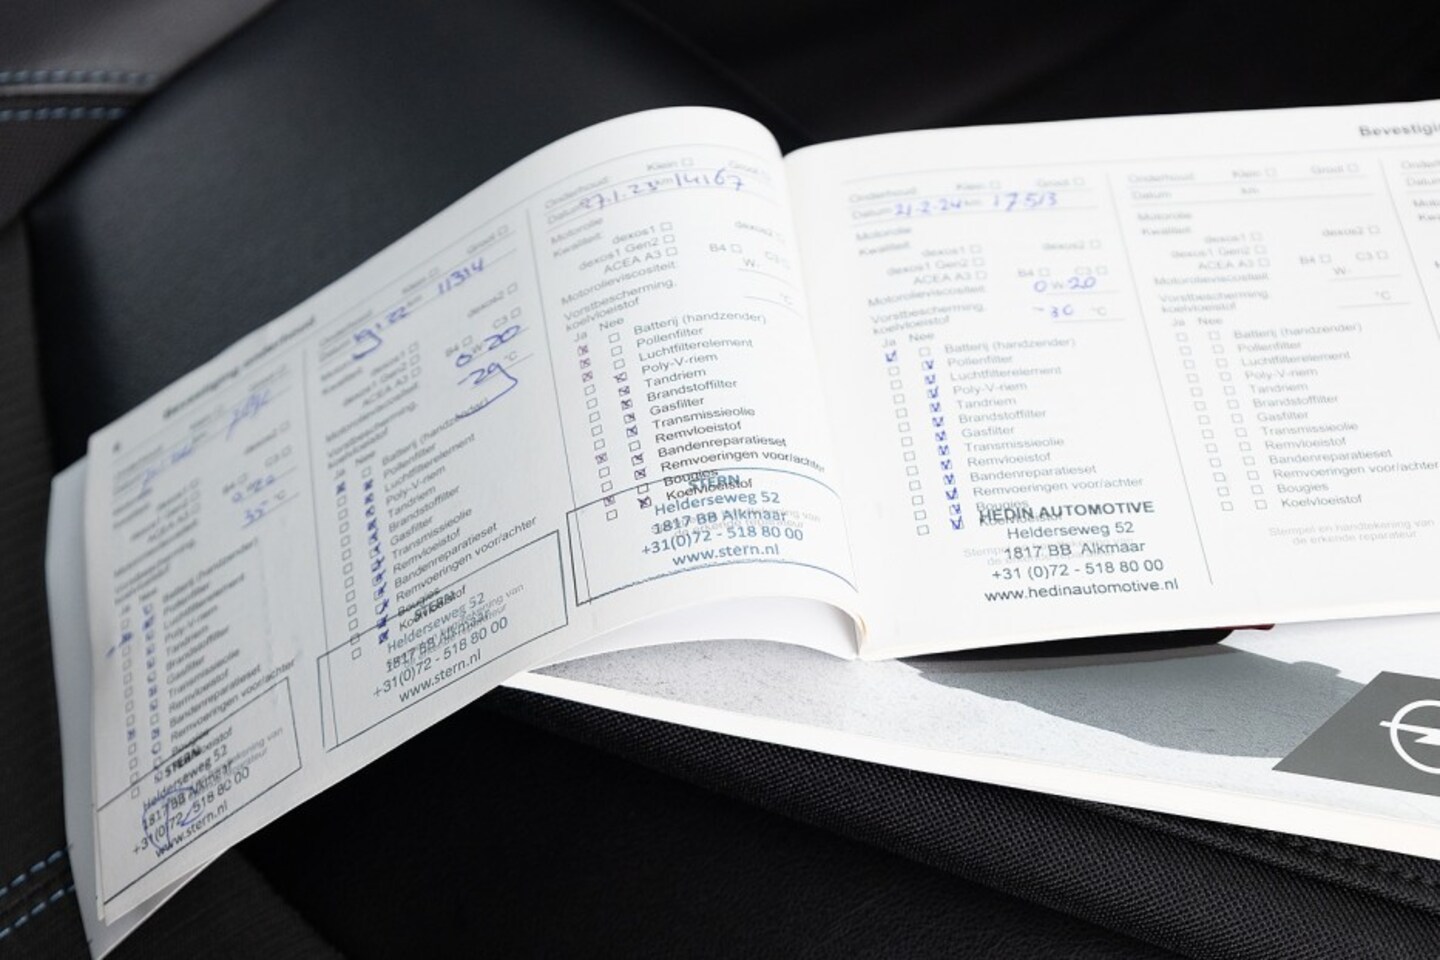 Bevestiging onderhoud
35 °C
Batterij (handzender)
Pollenfilter
Luchtfilterelement
Poly-V-riem
Tandriem
Brandstoffilter
Gasfilter
Transmissieolie
Remvloeistof
Bandenreparatieset
Remvoeringen voor/achter
STERN
Helderseweg 52
1817 BB Alkmaar
+31(0)72 - 518 80 00
www.stern.nl
Klein Groot
11314
Kwaliteit: dexos1 dexos2
dexos1 Gen2
ACEA A3 B4 C3
Motorolieviscositeit: 0 W 20
Vorstbescherming, -29 °C
koelvloeistof
Ja Nee
Batterij (handzender)
Pollenfilter
Luchtfilterelement
Poly-V-riem
Tandriem
Brandstoffilter
Gasfilter
Transmissieolie
Remvloeistof
Bandenreparatieset
Remvoeringen voor/achter
Bougies
Koelvloeistof
STERN
Helderseweg 52
1817 BB Alkmaar
+31(0)72 - 518 80 00
www.stern.nl
Onderhoud Klein Groot
Datum 27.1.23 km 14167
Motorolie
Kwaliteit: dexos1 dexos2
dexos1 Gen2
ACEA A3 B4 C3
Motorolieviscositeit: W-
Vorstbescherming, °C
koelvloeistof
Ja Nee
Batterij (handzender)
Pollenfilter
Luchtfilterelement
Poly-V-riem
Tandriem
Brandstoffilter
Gasfilter
Transmissieolie
Remvloeistof
Bandenreparatieset
Remvoeringen voor/achter
Bougies
Koelvloeistof
STERN
Helderseweg 52
1817 BB Alkmaar
+31(0)72 - 518 80 00
www.stern.nl
Onderhoud Klein Groot
Datum 21-2-24 km 17513
Motorolie
Kwaliteit: dexos1 dexos2
dexos1 Gen2
ACEA A3 B4 C3
Motorolieviscositeit: 0 W 20
Vorstbescherming, -30 °C
koelvloeistof
Ja Nee
Batterij (handzender)
Pollenfilter
Luchtfilterelement
Poly-V-riem
Tandriem
Brandstoffilter
Gasfilter
Transmissieolie
Remvloeistof
Bandenreparatieset
Remvoeringen voor/achter
Bougies
Koelvloeistof
HEDIN AUTOMOTIVE
Helderseweg 52
1817 BB Alkmaar
+31 (0)72 - 518 80 00
www.hedinautomotive.nl
Onderhoud Klein Groot
Datum km
Motorolie
Kwaliteit: dexos1 dexos2
dexos1 Gen2
ACEA A3 B4 C3
Motorolieviscositeit: W-
Vorstbescherming, °C
koelvloeistof
Ja Nee
Batterij (handzender)
Pollenfilter
Luchtfilterelement
Poly-V-riem
Tandriem
Brandstoffilter
Gasfilter
Transmissieolie
Remvloeistof
Bandenreparatieset
Remvoeringen voor/achter
Bougies
Koelvloeistof
Stempel en handtekening van
de erkende reparateur